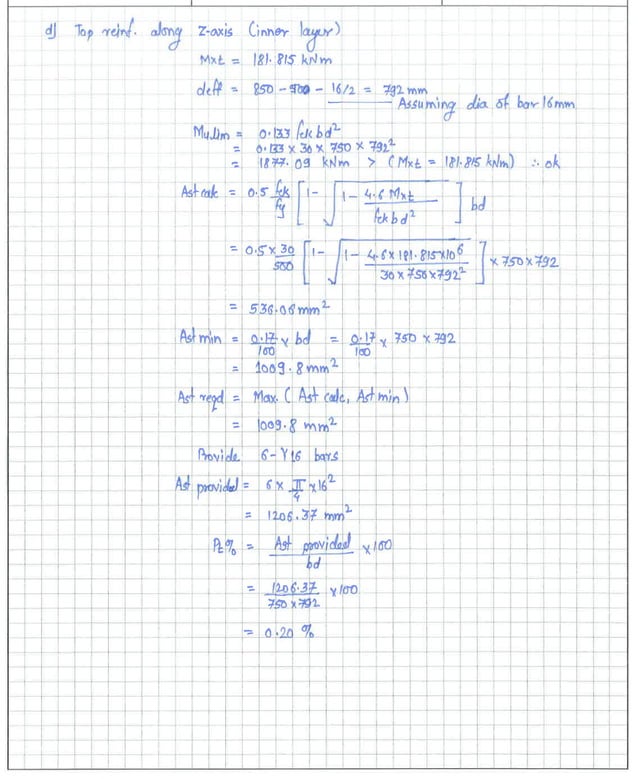 d) Top reinf. along z-axis (inner layer)
Mxt = 181.815 kNm
deff = 850 - - 16/2 = 792 mm
Assuming dia of bar 16mm
Mulim = 0.133 fck bd²
= 0.133 x 30 x 750 x 792²
= 1877.09 kNm > (Mxt = 181.815 kNm) ∴ ok
Ast calc = 0.5 fck/fy [1 - √(1 - 4.6 Mxt / fck bd²)] bd
= 0.5 x 30/500 [1 - √(1 - 4.6 x 181.815 x 10⁶ / 30 x 750 x 792²)] x 750 x 792
= 536.06 mm²
Ast min = 0.17/100 x bd = 0.17/100 x 750 x 792
= 1009.8 mm²
Ast reqd = Max. (Ast calc, Ast min)
= 1009.8 mm²
Provide 6-Y16 bars
Ast provided = 6 x π/4 x 16²
= 1206.37 mm²
Pt% = Ast provided / bd x 100
= 1206.37 / 750 x 792 x 100
= 0.20 %